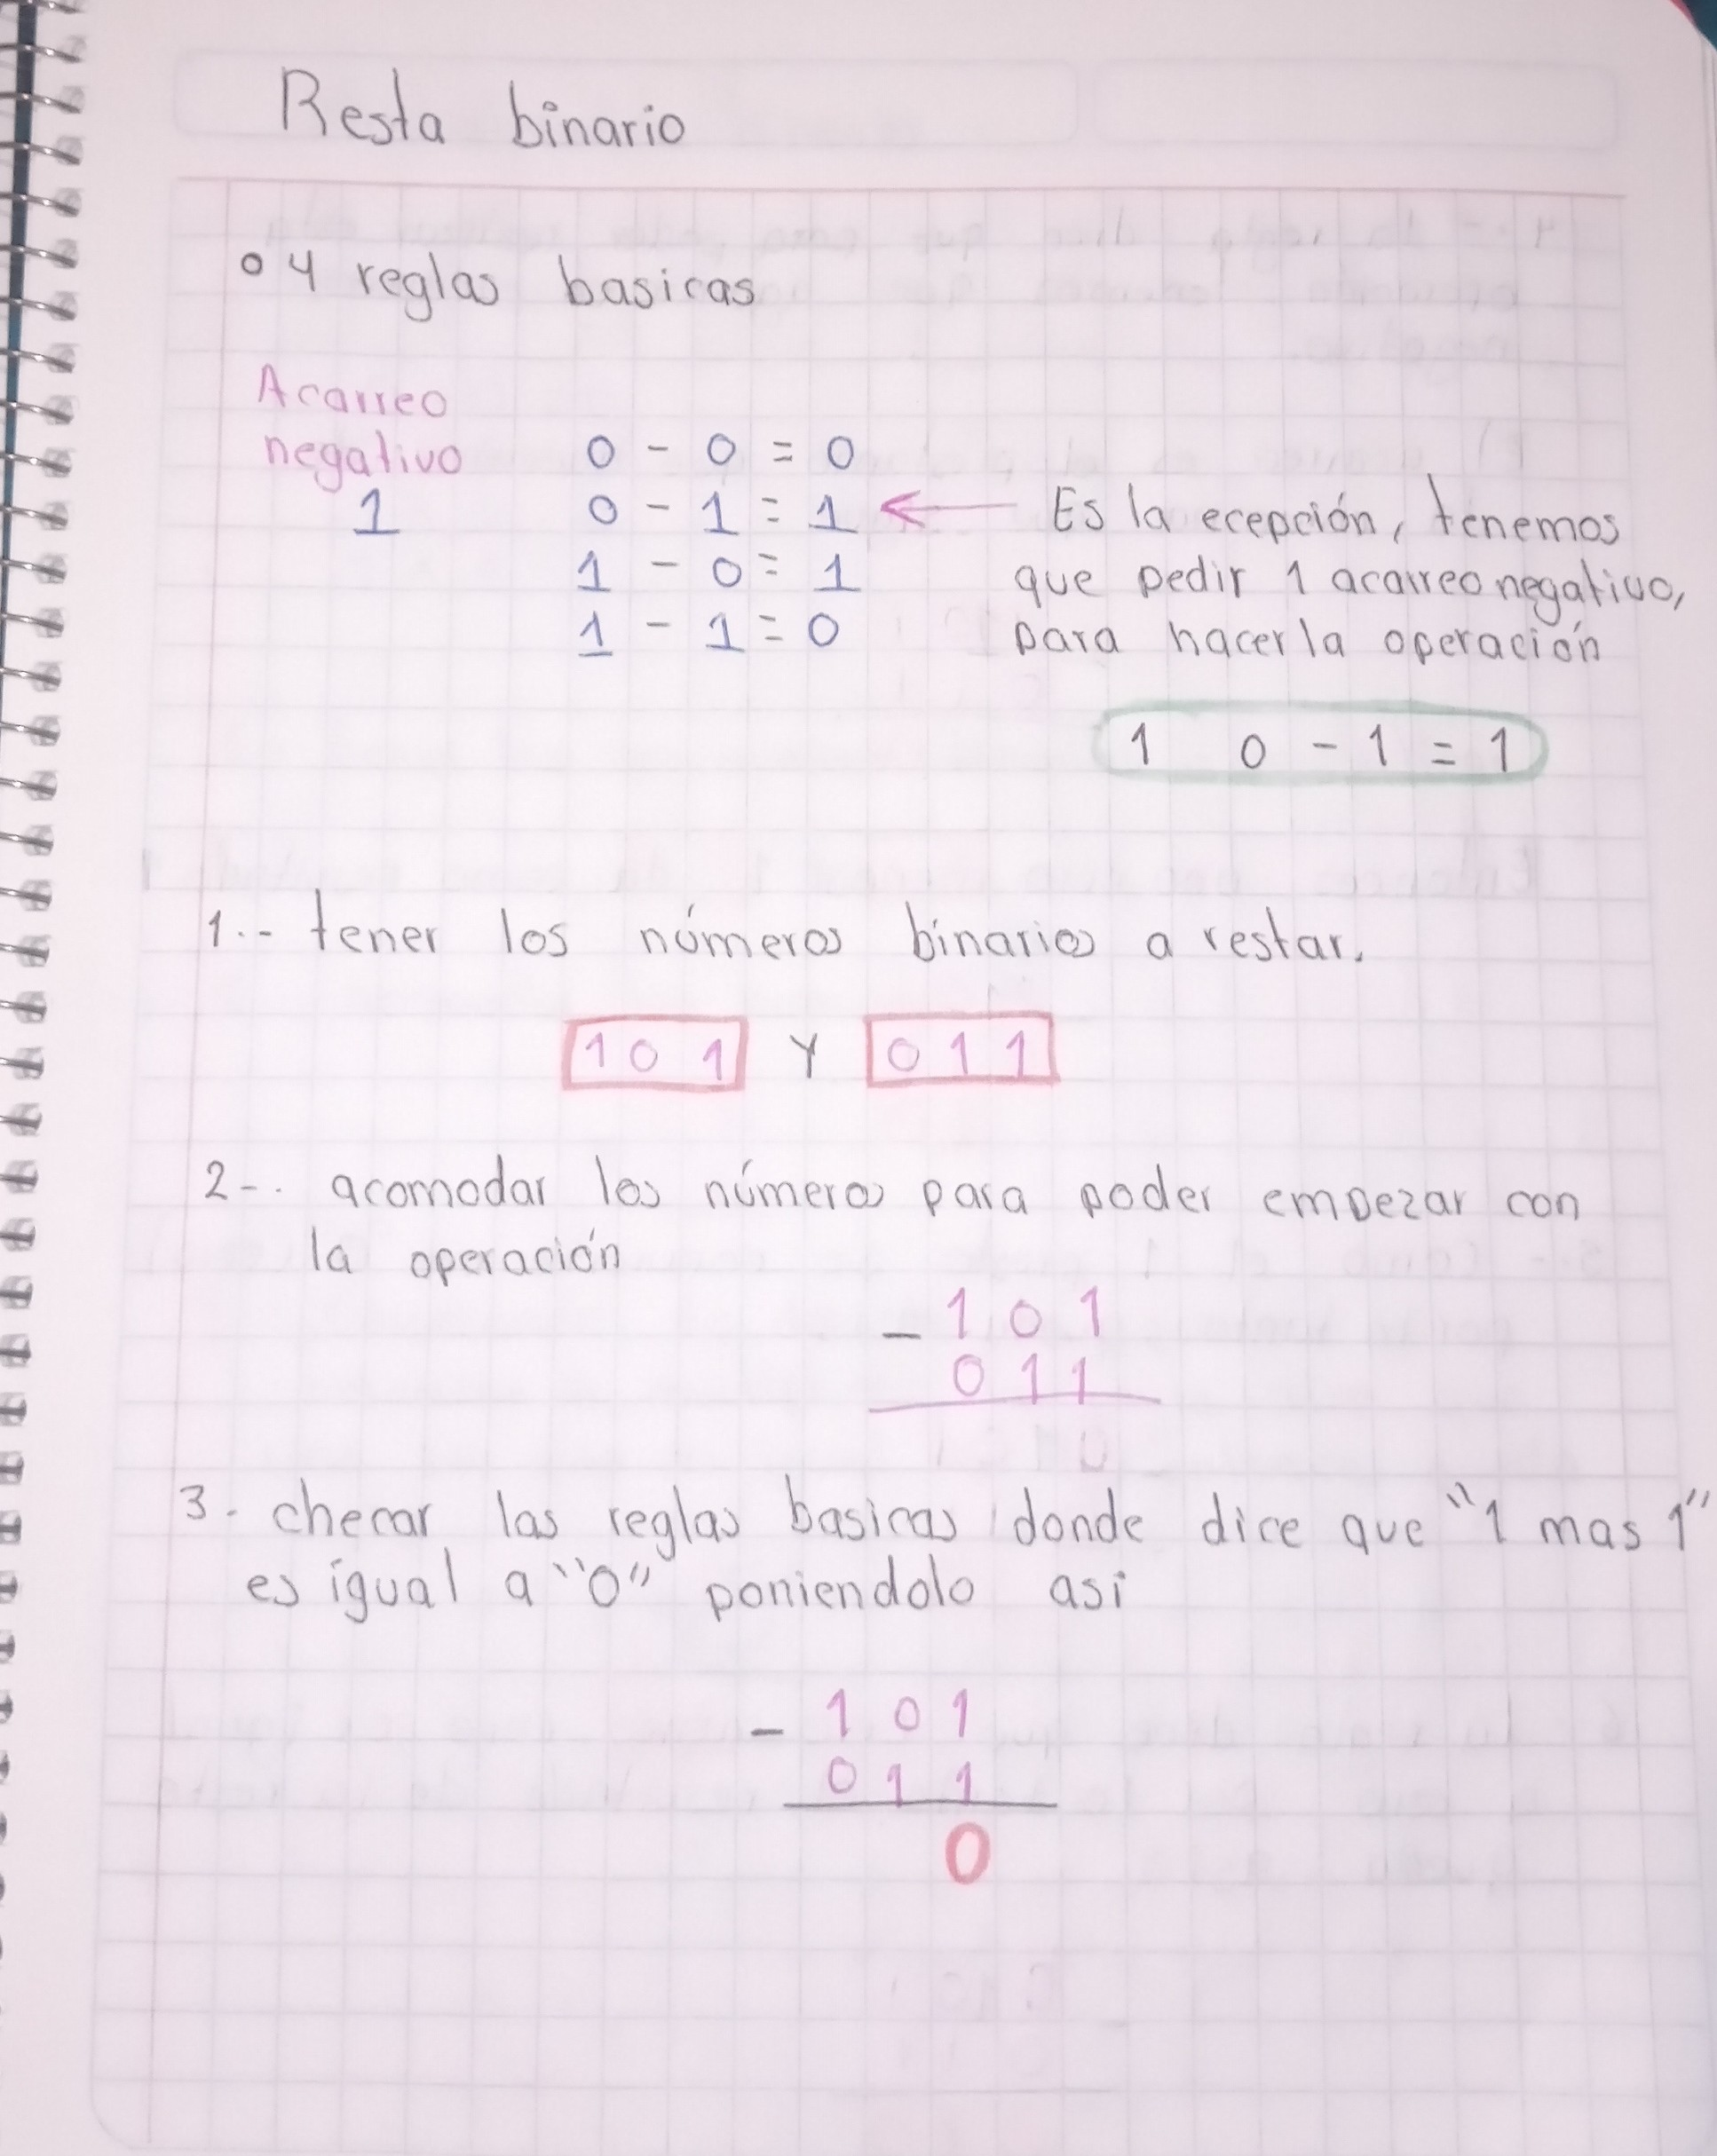 Resta binario
o 4 reglas basicas
Acarreo
negativo
0 - 0 = 0
1 0 - 1 = 1 ← Es la ecepción, tenemos
1 - 0 = 1 que pedir 1 acarreo negativo,
1 - 1 = 0 para hacer la operación
1 0 - 1 = 1
1.- tener los números binarios a restar.
101 Y 011
2-. acomodar los números para poder empezar con
la operación
- 101
011
3. checar las reglas basicas donde dice que "1 mas 1"
es igual a "0" poniendolo asi
- 101
011
0